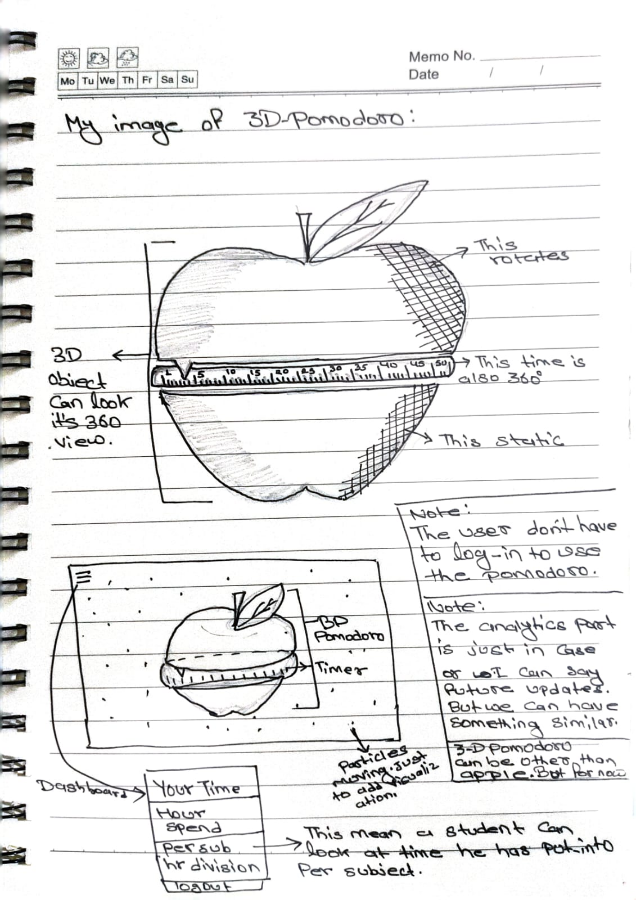 Memo No.
Mo Tu We Th Fr Sa Su
Date / /
My image of 3D-Pomodoro:
This
rotates
3D
object
Can look
it's 360
view.
1 5 10 15 20 25 30 35 40 45 50
This time is
also 360°
This static
Note:
The user don't have
to log-in to use
the pomodoro.
Note:
The analytics part
is just in case
or I can say
Future updates.
But we can have
something similar.
3-D Pomodoro
can be other than
apple. But for now
3D
Pomodoro
Timer
Particles
moving. just
to add visualiz
ation.
Dashboard
Your Time
Hour
spend
Per sub
hr division
logout
This mean a student can
look at time he has put into
Per subject.